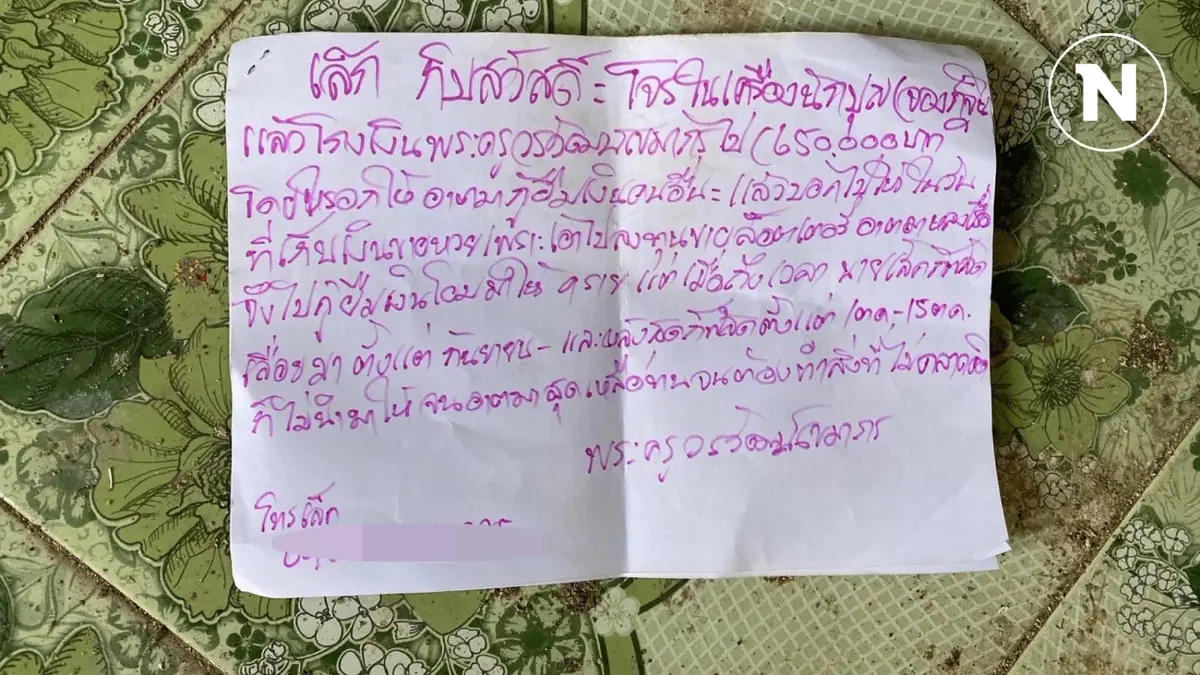 เล็ก ทิปสวัสดิ์ = โจรในเครื่องนักบุญ (จองกฐิน
แล้วโกงเงินพระครูวรวัฒน ไป (650,000บาท
โดยหรอกให้ อาตมากู้ยืมเงินคนอื่น = แล้วบอกไปให้ในวัน
ที่เก็บเงินขายหวย เพราะเอาไปลงทุนขายล็อตเตอรี่ อาตมาหลงเชื่อ
จึงไปกู้ยืมเงินโอนมาให้ แต่เมื่อถึงเวลา นายเล็กก็ผลัด
เลื่อยมา ตั้งแต่ กันยายน - และหลังสุดก็ผลัดตั้งแต่ 1ตค.-15ตค.
ก็ไม่นำมาให้ จนอาตมาสุดเหลือทนจนต้องทำสิ่งที่ไม่คาดคิด
พระครูวรวัฒน
โทรเล็ก
N